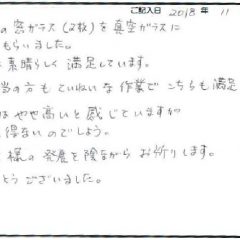 ご記入日 2018 年 11
の窓ガラス(2枚)を真空ガラスに
もらいました。
素晴らしく満足しています。
当の方もていねいな作業でこちらも満足
はやや高いと感じていますが
得ないのでしょう。
様の発展を陰ながらお祈りします。
ようございました。